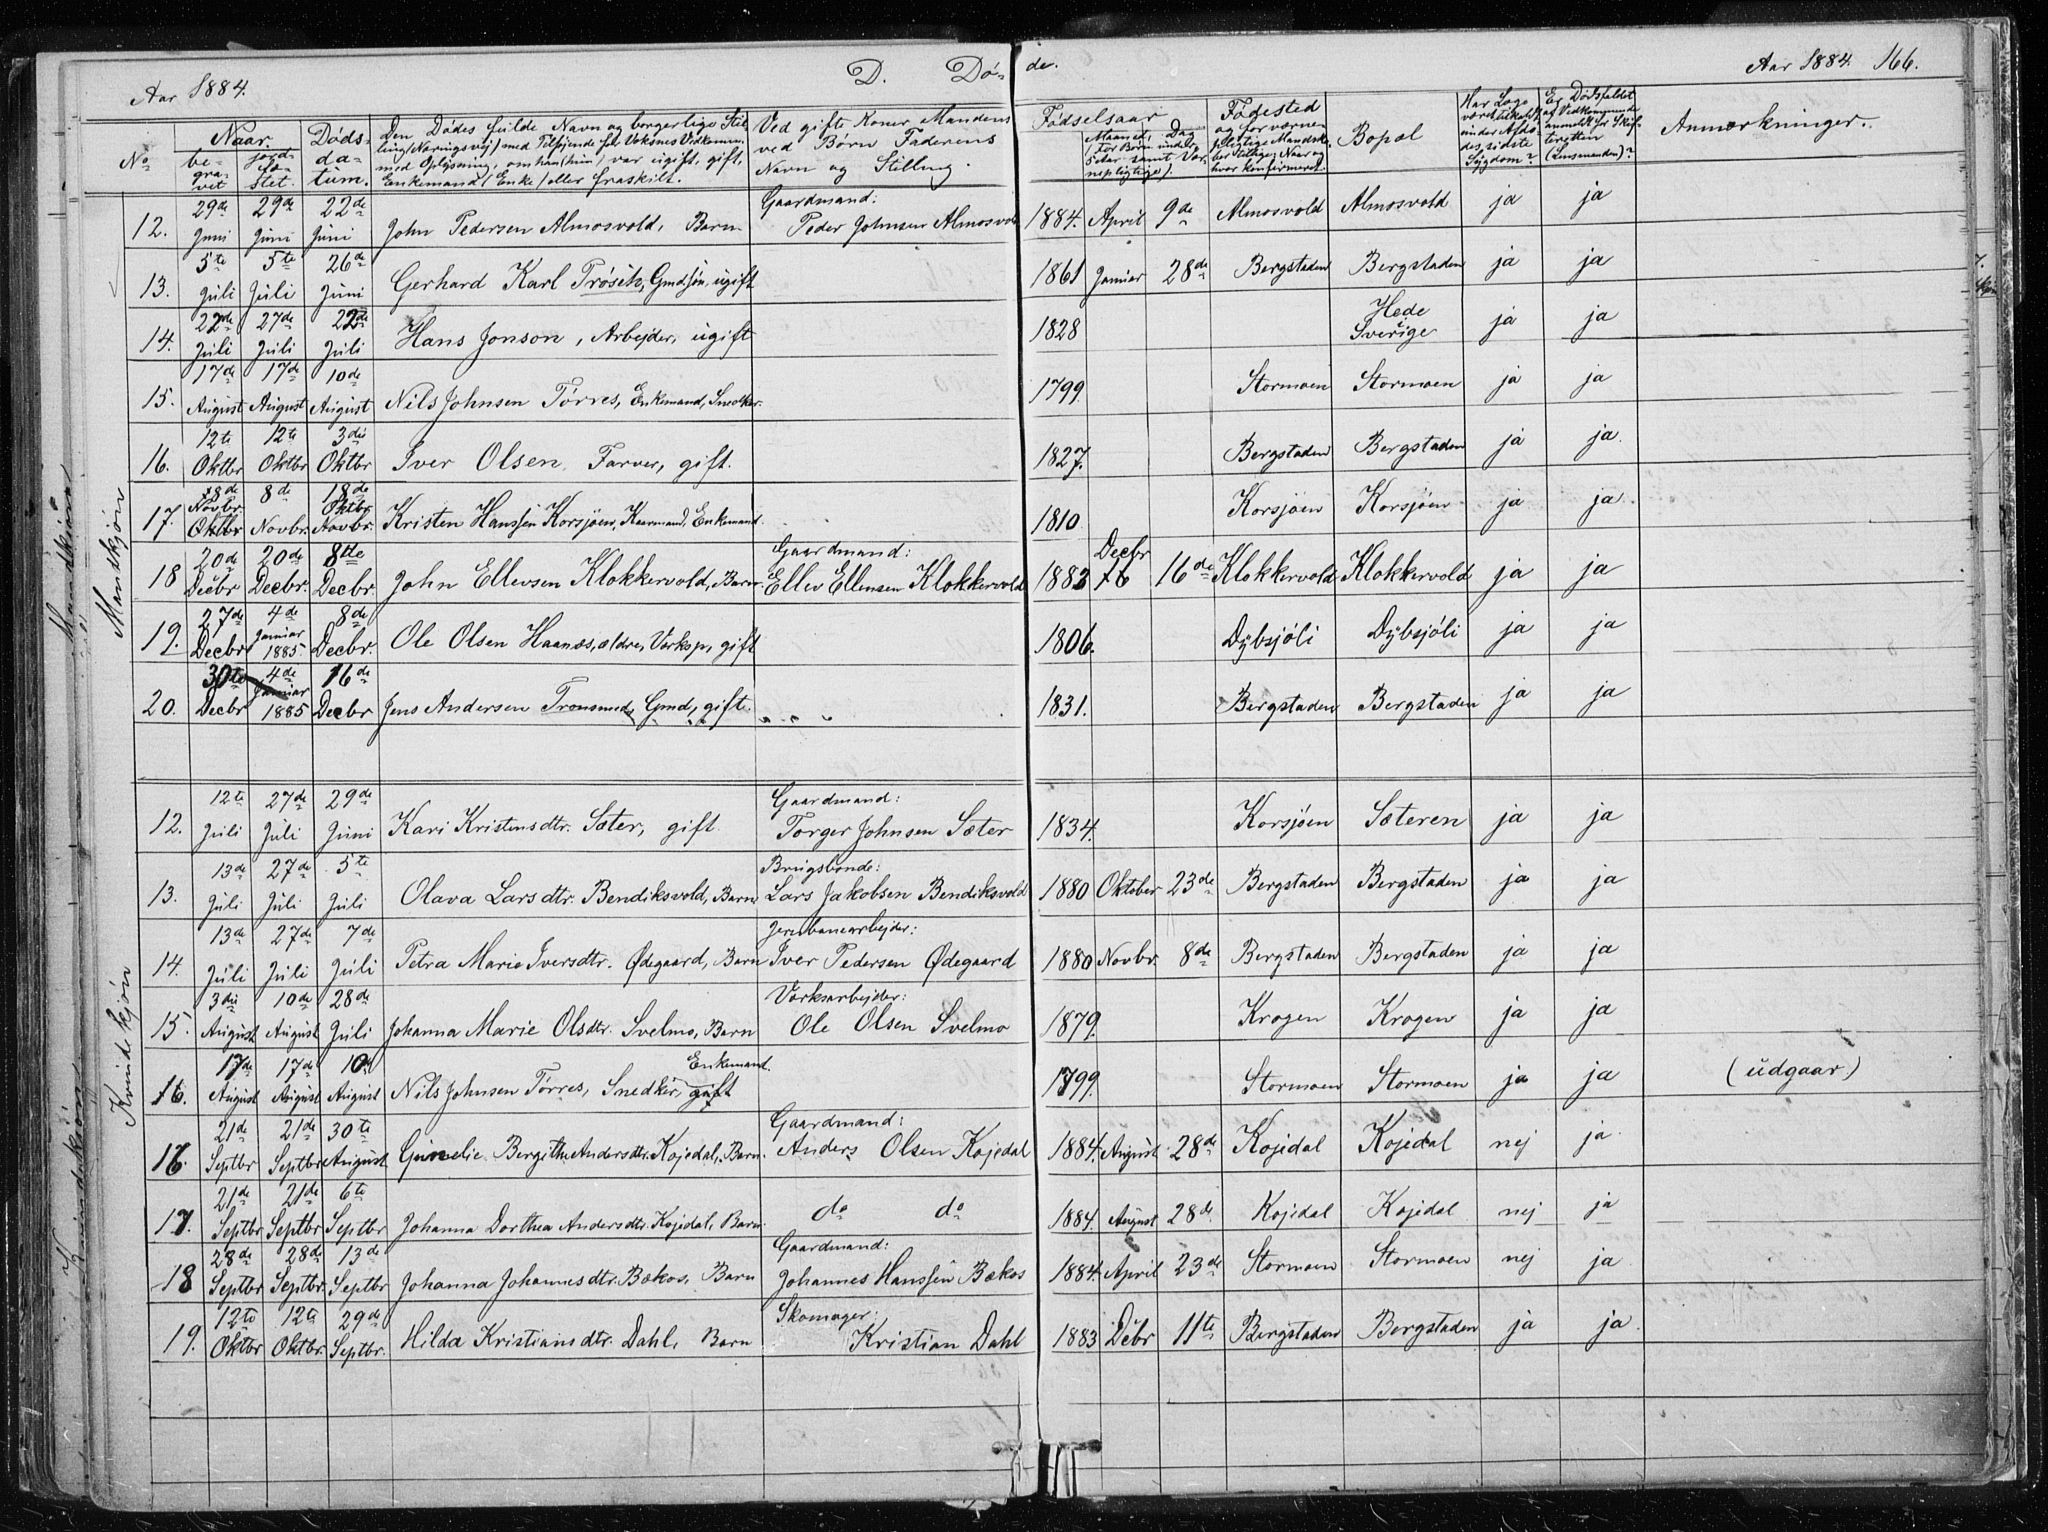 Aar 1884.
D. Dø-
de.
Aar 1884. 166.
No
Naar
be-
gra-
vet
jord-
fæ-
stet.
Døds-
da-
tum.
Den Dødes fulde Navn og borgerlige Stil-
ling (Næringsvej) med Tilføjende for Voksnes Vedkomm.
med Oplysning, om han (hun) var ugift, gift,
Enkemand (Enke) eller fraskilt.
Ved gifte Koner Mandens
ved Børn Faderens
Navn og Stilling
Fødselsaar
Maaned, Dag
(for Børn under
5 Aar samt Vær-
nepligtige).
Fødested
og for værne-
pligtige Mandskaber
tillige, Naar og
hvor konfirmeret.
Bopæl
Har Læge
været tilkaldt
under Afdø-
des sidste
Sygdom?
Er Dødsfaldet
af Vedkommende
anmeldt for Skif-
teretten
(Lensmanden)?
Anmærkninger.
Mandkjøn
12. 29de Juni 29de Juni 22de Juni John Pedersen Almosvold, Barn Gaardmand: Peder Johnsen Almosvold 1884. April 9de Almosvold Almosvold ja ja
13. 5te Juli 5te Juli 26de Juni Gerhard Karl Trøseth, Gmdsøn, ugift 1861 Januar 28de Bergstaden Bergstaden ja ja
14. 22de Juli 27de Juli 22de Juli Hans Jonson, Arbejder, ugift 1828 Hede i Sverige ja ja
15. 17de August 17de August 10de August Nils Johnsen Tørres, Enkemand, Snedker. 1799. Stormoen Stormoen ja ja
16. 12te Oktbr 12te Oktbr 3die Oktbr Iver Olsen, Farver, gift. 1827. Bergstaden Bergstaden ja ja.
17. 8de Novbr. Oktbr 8de Novbr. 18de Oktbr Novbr. Kristen Hanssen Korsjøen, Kaarmand, Enkemand. 1810 Korsjøen Korsjøen ja ja.
18 20de Decbr 20de Decbr. 8tte Decbr. John Ellevsen Klokkervold, Barn. Gaardmand: Ellev Ellensen Klokkervold 1883 Decbr 16 16de Klokkervold Klokkervold ja ja
19. 27de Decbr 4de Januar 1885 8de Decbr. Ole Olsen Haanæs, ældre, Værksp., gift 1806. Dybsjøli Dybsjøli ja ja
20. 30te Decbr 4de Januar 1885 16de Decbr Jens Andersen Tronsmed, Gmd, gift. 1831. Bergstaden Bergstaden ja ja
Kvindekjøn
12. 12te Juli 27de Juli 29de Juni Kari Kristensdtr. Sæter, gift Gaardmand: Torger Johnsen Sæter 1834. Korsjøen Sæteren ja ja
13. 13de Juli 27de Juli 5te Juli Olava Larsdtr. Bendiksvold, Barn Brugsbonde: Lars Jakobsen Bendiksvold 1880 Oktober 23de Bergstaden Bergstaden ja ja
14. 13de Juli 27de Juli 7de Juli Petra Marie Iversdtr. Ødegaard, Barn Jernbanearbejder: Iver Pedersen Ødegaard 1880 Novbr. 8de Bergstaden Bergstaden ja ja
15. 3die August 10de August 28de Juli Johanna Marie Olsdtr. Svelmo, Barn Værksarbejder: Ole Olsen Svelmo 1879. Krogen Krogen ja ja
16. 17de August 17de August 10de August Nils Johnsen Tørres, Snedker, gift Enkemand. 1799. Stormoen Stormoen ja ja (udgaar)
16. 21de Septbr 21de Septbr 30te August Gunelie Bergithe Andersdtr. Kojedal, Barn. Gaardmand: Anders Olsen Kojedal 1884. August 28de Kojedal Kojedal nej ja
17. 21de Septbr 21de Septbr. 6te Septbr Johanna Dorthea Andersdtr. Kojedal, Barn. do do 1884. August 28de. Kojedal Kojedal nej ja
18 28de Septbr 28de Septbr. 13de Septbr Johanna Johannesdtr. Bækos, Barn Gaardmand: Johannes Hanssen Bækos 1884 April 23de Stormoen Stormoen nej ja
19. 12te Oktbr 12te Oktbr. 29de Septbr. Hilda Kristiansdtr. Dahl, Barn Skomager: Kristian Dahl 1883 Debr 11te Bergstaden Bergstaden ja ja.
Mandkjøn
Kvindekjøn